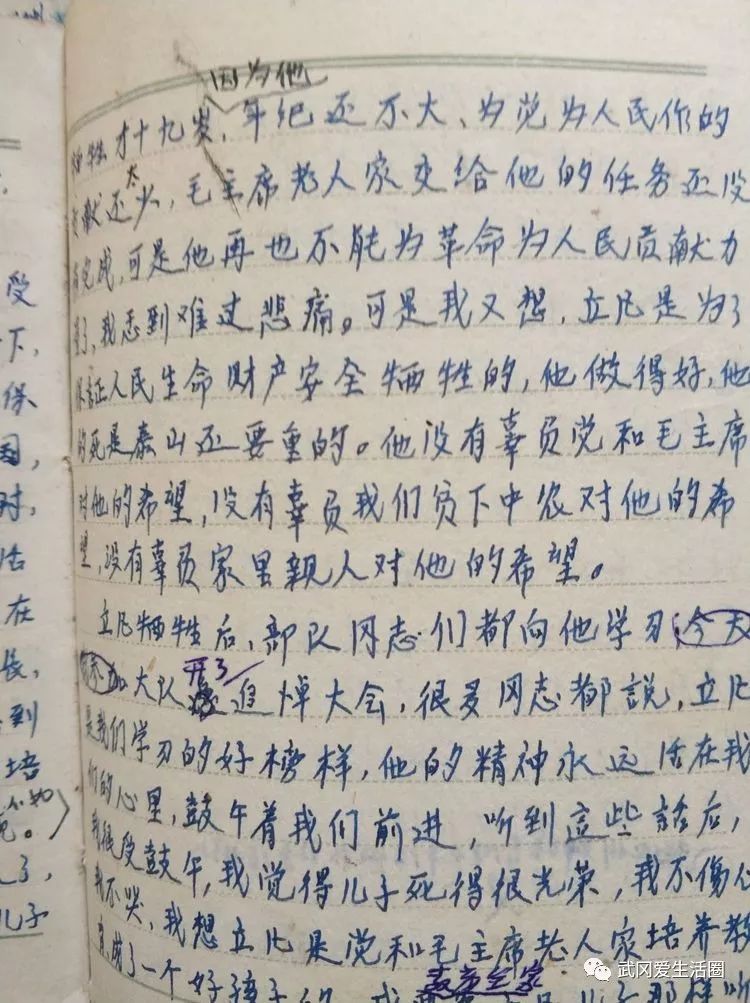 因为他
牺牲才十九岁，年纪还不大、为党为人民作的
贡献还太少，毛主席老人家交给他的任务还没
有完成，可是他再也不能为革命为人民贡献力
了，我感到难过悲痛。可是我又想，立凡是为了
保証人民生命财产安全牺牲的，他做得好，他
的死是泰山还要重的。他没有辜负党和毛主席
对他的希望，没有辜负我们贫下中农对他的希
望，没有辜负家里亲人对他的希望。
立凡牺牲后，部队同志们都向他学习，今天
加大队开了追悼大会，很多同志都説，立凡
是我们学习的好榜样，他的精神永远活在我
们的心里，鼓午着我们前进，听到這些話后，
我很受鼓午，我觉得儿子死得很光荣，我不伤心
我不哭，我想立凡是党和毛主席老人家培养教
育成了一个好孩子的
受
下，
保
国，
时，
活
在
长，
到
培
了，
儿子
武冈爱生活圈